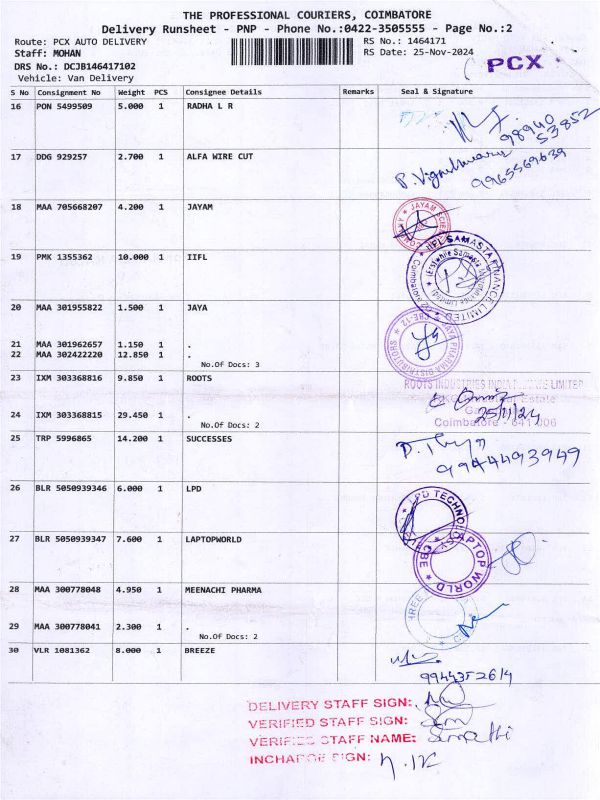 THE PROFESSIONAL COURIERS, COIMBATORE
Delivery Runsheet - PNP - Phone No.:0422-3505555 - Page No.:2
Route: PCX AUTO DELIVERY
RS No.: 1464171
Staff: MOHAN
RS Date: 25-Nov-2024
DRS No.: DCJB146417102
Vehicle: Van Delivery
PCX
S No Consignment No Weight PCS Consignee Details Remarks Seal & Signature
16 PON 5499509 5.000 1 RADHA L R
98940
53852
17 DDG 929257 2.700 1 ALFA WIRE CUT
P. Vigneshwaran
9965569639
18 MAA 705668207 4.200 1 JAYAM
19 PMK 1355362 10.000 1 IIFL
IIFL SAMASTA FINANCE LIMITED
20 MAA 301955822 1.500 1 JAYA
JAYA PHARMA DISTRIBUTORS
CBE-12
21 MAA 301962657 1.150 1 .
22 MAA 302422220 12.850 1 .
No.Of Docs: 3
23 IXM 303368816 9.850 1 ROOTS
ROOTS INDUSTRIES INDIA PRIVATE LIMITED
Estate
25/11/24
Coimbatore - 641 006
24 IXM 303368815 29.450 1 .
No.Of Docs: 2
25 TRP 5996865 14.200 1 SUCCESSES
9944493949
26 BLR 5050939346 6.000 1 LPD
LPD TECHNO
27 BLR 5050939347 7.600 1 LAPTOPWORLD
LAPTOP WORLD
CBE
28 MAA 300778048 4.950 1 MEENACHI PHARMA
29 MAA 300778041 2.300 1 .
No.Of Docs: 2
30 VLR 1081362 8.000 1 BREEZE
DELIVERY STAFF SIGN:
VERIFIED STAFF SIGN:
VERIFIED STAFF NAME:
INCHARGE SIGN: